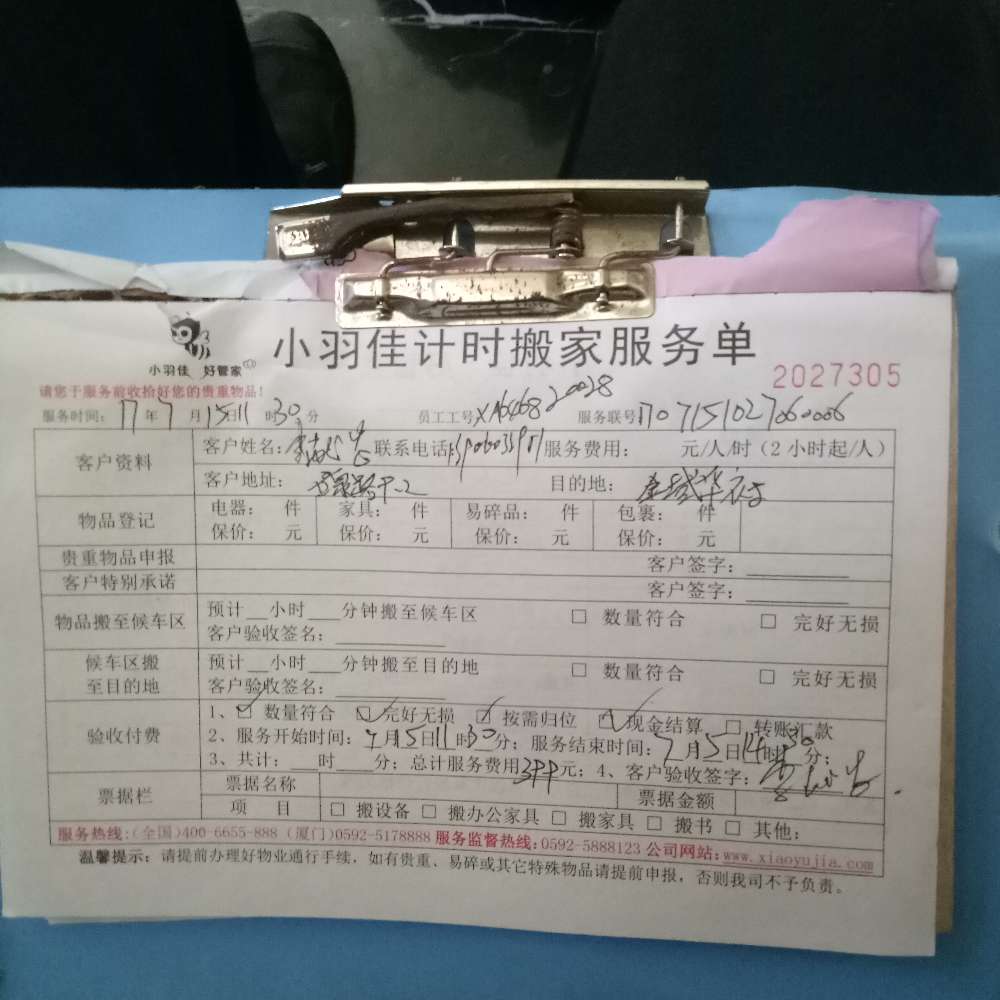 小羽佳计时搬家服务单
小羽佳 好管家
2027305
请您于服务前收拾好您的贵重物品!
服务时间: 17年7月15日11时30分 员工工号 服务联号
客户资料 客户姓名: 联系电话: 服务费用: 元/人/时（2小时起/人）
客户地址: 目的地:
物品登记 电器: 件 家具: 件 易碎品: 件 包裹: 件
保价: 元 保价: 元 保价: 元 保价: 元
贵重物品申报 客户签字:
客户特别承诺 客户签字:
物品搬至候车区 预计__小时___分钟搬至候车区 □ 数量符合 □ 完好无损
客户验收签名:
候车区搬至目的地 预计__小时___分钟搬至目的地 □ 数量符合 □ 完好无损
客户验收签名:
验收付费 1、☑ 数量符合 ☑ 完好无损 ☑ 按需归位 ☑ 现金结算 □ 转账汇款
2、服务开始时间: 月15日11时30分; 服务结束时间: 7月15日14时30分;
3、共计:___时___分; 总计服务费用元; 4、客户验收签字:
票据栏 票据名称 票据金额
项 目 □ 搬设备 □ 搬办公家具 □ 搬家具 □ 搬书 □ 其他:
服务热线:(全国)400-6655-888 (厦门)0592-5178888 服务监督热线:0592-5888123 公司网站:www.xiaoyujia.com
温馨提示: 请提前办理好物业通行手续, 如有贵重、易碎或其它特殊物品请提前申报, 否则我司不予负责。